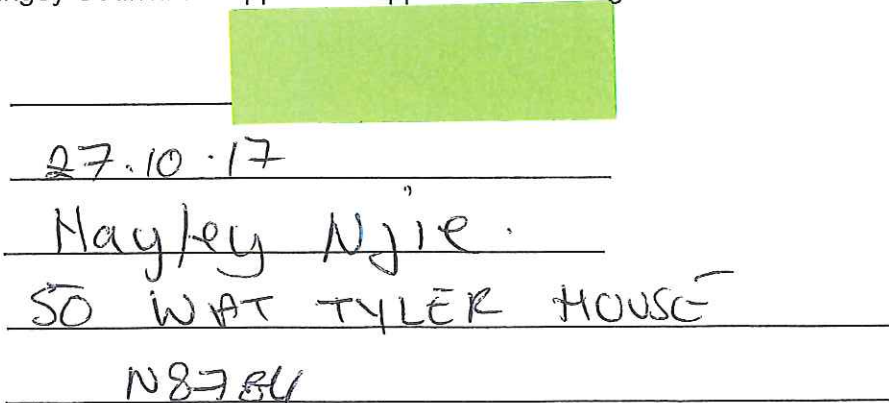 27.10.17
Hayley Njie.
50 WAT TYLER HOUSE
N8